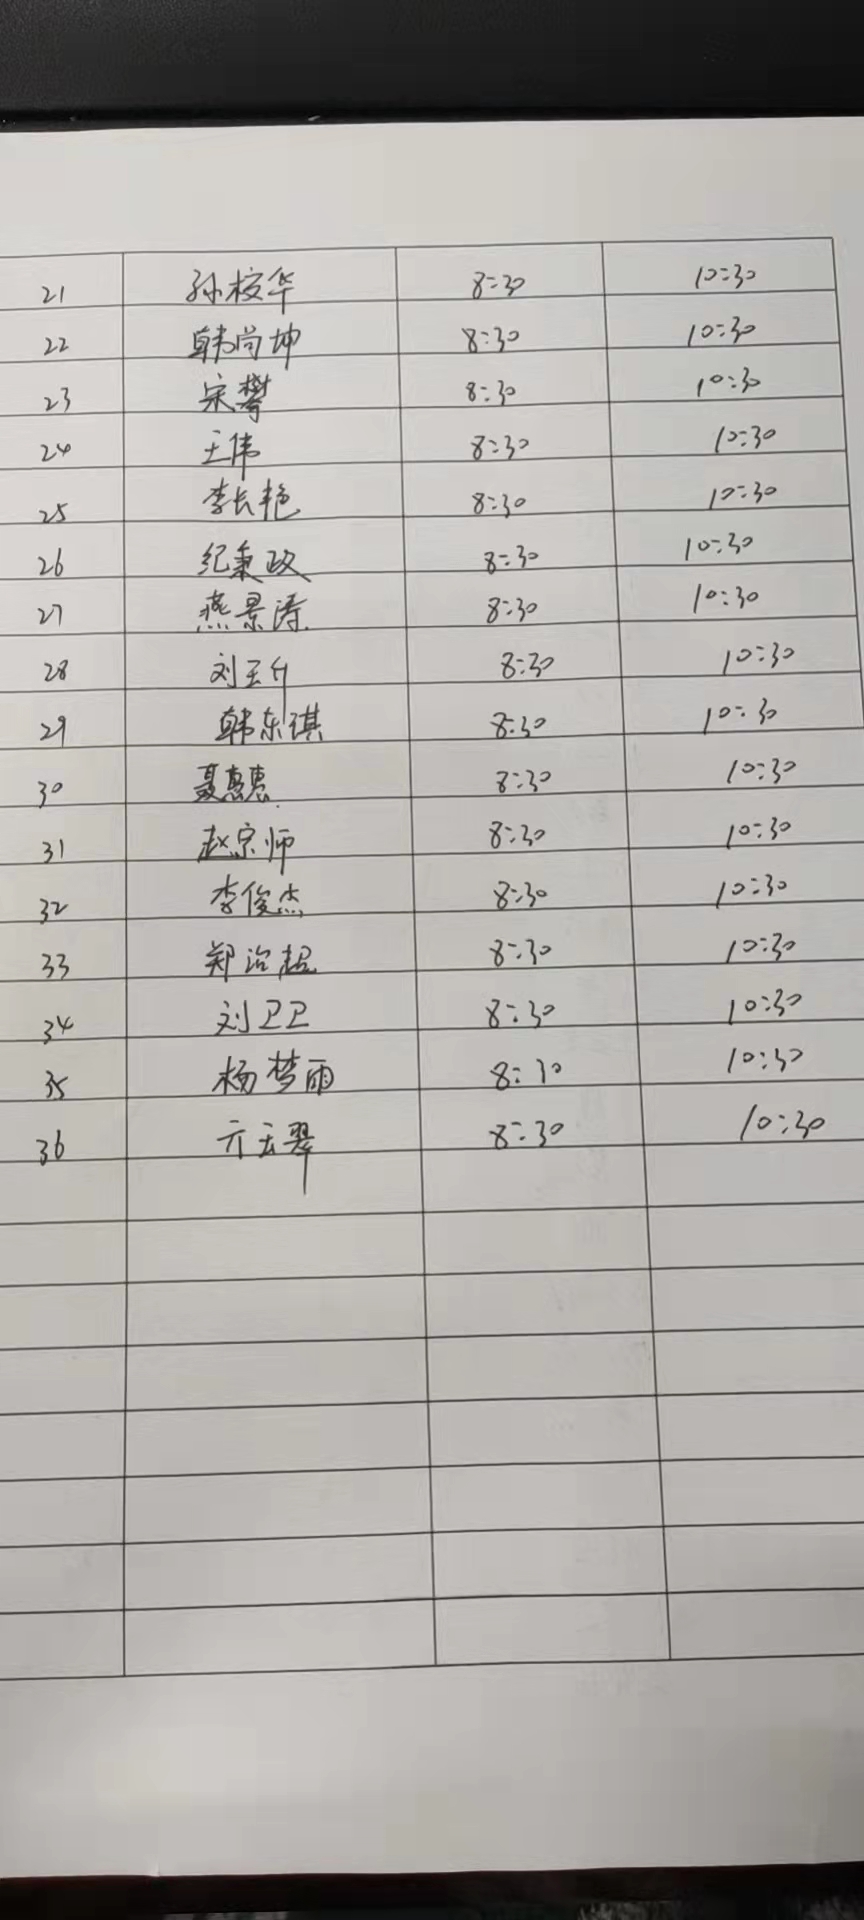 21 孙桉华 8:30 10:30
22 韩尚坤 8:30 10:30
23 宋攀 8:30 10:30
24 王伟 8:30 10:30
25 李长艳 8:30 10:30
26 纪秉政 8:30 10:30
27 燕景涛 8:30 10:30
28 刘玉升 8:30 10:30
29 韩东琪 8:30 10:30
30 聂惠惠 8:30 10:30
31 赵宗师 8:30 10:30
32 李俊杰 8:30 10:30
33 郑治超 8:30 10:30
34 刘卫卫 8:30 10:30
35 杨梦雨 8:30 10:30
36 亓云翠 8:30 10:30